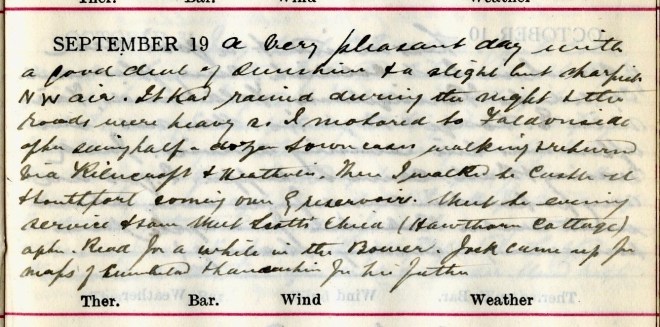 Ther. Bar. Wind Weather
SEPTEMBER 19 A very pleasant day with
a good deal of sunshine & a slight but sharpish
NW air. It had rained during the night & the
roads were heavy as I motored to Faldonside
after seeing half a dozen town cases walking & returned
via & Then I walked to Castle St
& coming over by reservoir. Went to evening
service & saw Scott's child (Hawthorn Cottage)
after. Read for a while in the Bower. Jock came up for
maps of & for his father
Ther. Bar. Wind Weather